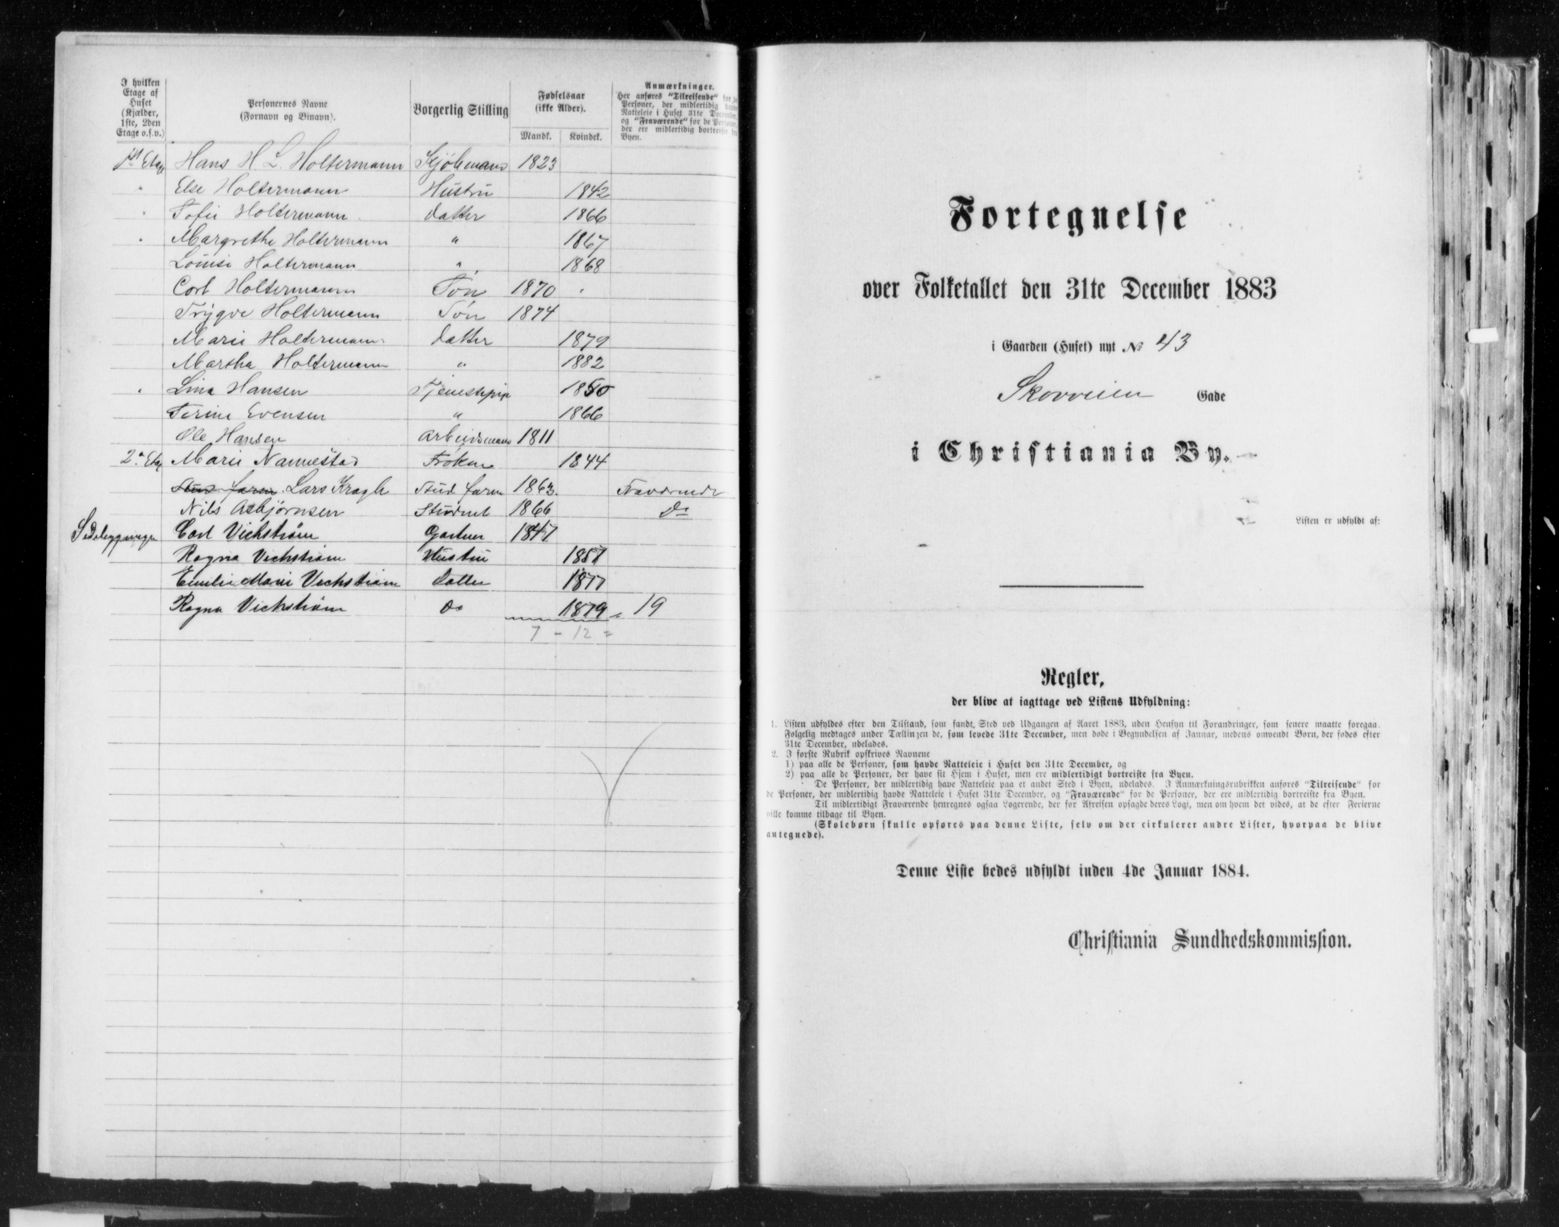 I hvilken Etage af Huset (Kjælder, 1ste, 2den Etage o.s.v.)
Personernes Navne (Fornavn og Binavn).
Borgerlig Stilling
Fødselsaar (ikke Alder).
Mandk. Kvindek.
Anmærkninger.
Her anføres "Tilreisende" for
Personer, der midlertidig
Natteleie i Huset 31te
og "Fraværende" for de
der ere midlertidig bortreiste
Byen.
1st Etag Hans H L Holtermann Kjöbmand 1823
" Else Holtermann Hustru 1842
" Sofie Holtermann datter 1866
" Margrethe Holtermann " 1867
Louise Holtermann " 1868
Carl Holtermann Søn 1870
Trygve Holtermann Søn 1874
Marie Holtermann datter 1879
Martha Holtermann " 1882
" Lina Hansen Tjenestepige 1850
Evensen " 1866
Ole Hansen Arbeidsmand 1811
2. Etag Marie Nannestad Frøken 1844
Stud. farm. Lars Kragh Stud farm 1863 Fraværende
Nils Asbjørnsen Student 1866 Do
Sidebygningen Carl Vickstrøm Gartner 1847
Ragna Vickstrøm Hustru 1857
Emilie Marie Vickstrøm datter 1877
Ragna Vickstrøm Do 1879 = 19
7 - 12 =
Fortegnelse
over Folketallet den 31te December 1883
i Gaarden (Huset) nyt No 43
Skovveien Gade
i Christiania By.
Listen er udfyldt af:
Regler,
der blive at iagttage ved Listens Udfyldning:
1. Listen udfyldes efter den Tilstand, som fandt Sted ved Udgangen af Aaret 1883, uden Hensyn til Forandringer, som senere maatte foregaa.
Følgelig medtages under Tællingen de, som levede 31te December, men døde i Begyndelsen af Januar, medens omvendt Børn, der fødes efter
31te December, udelades.
2. I første Rubrik opskrives Navnene
1) paa alle de Personer, som havde Natteleie i Huset den 31te December, og
2) paa alle de Personer, der have sit Hjem i Huset, men ere midlertidigt bortreiste fra Byen.
De Personer, der midlertidig have Natteleie paa et andet Sted i Byen, udelades. I Anmærkningsrubrikken anføres "Tilreisende" for
de Personer, der midlertidig havde Natteleie i Huset 31te December, og "Fraværende" for de Personer, der ere midlertidig bortreiste fra Byen.
Til midlertidigt Fraværende henregnes ogsaa Logerende, der før Afreisen opsagde deres Logi, men om hvem det vides, at de efter Ferierne
ville komme tilbage til Byen.
(Skolebørn skulle opføres paa denne Liste, selv om der cirkulerer andre Lister, hvorpaa de blive
antegnede).
Denne Liste bedes udfyldt inden 4de Januar 1884.
Christiania Sundhedskommission.